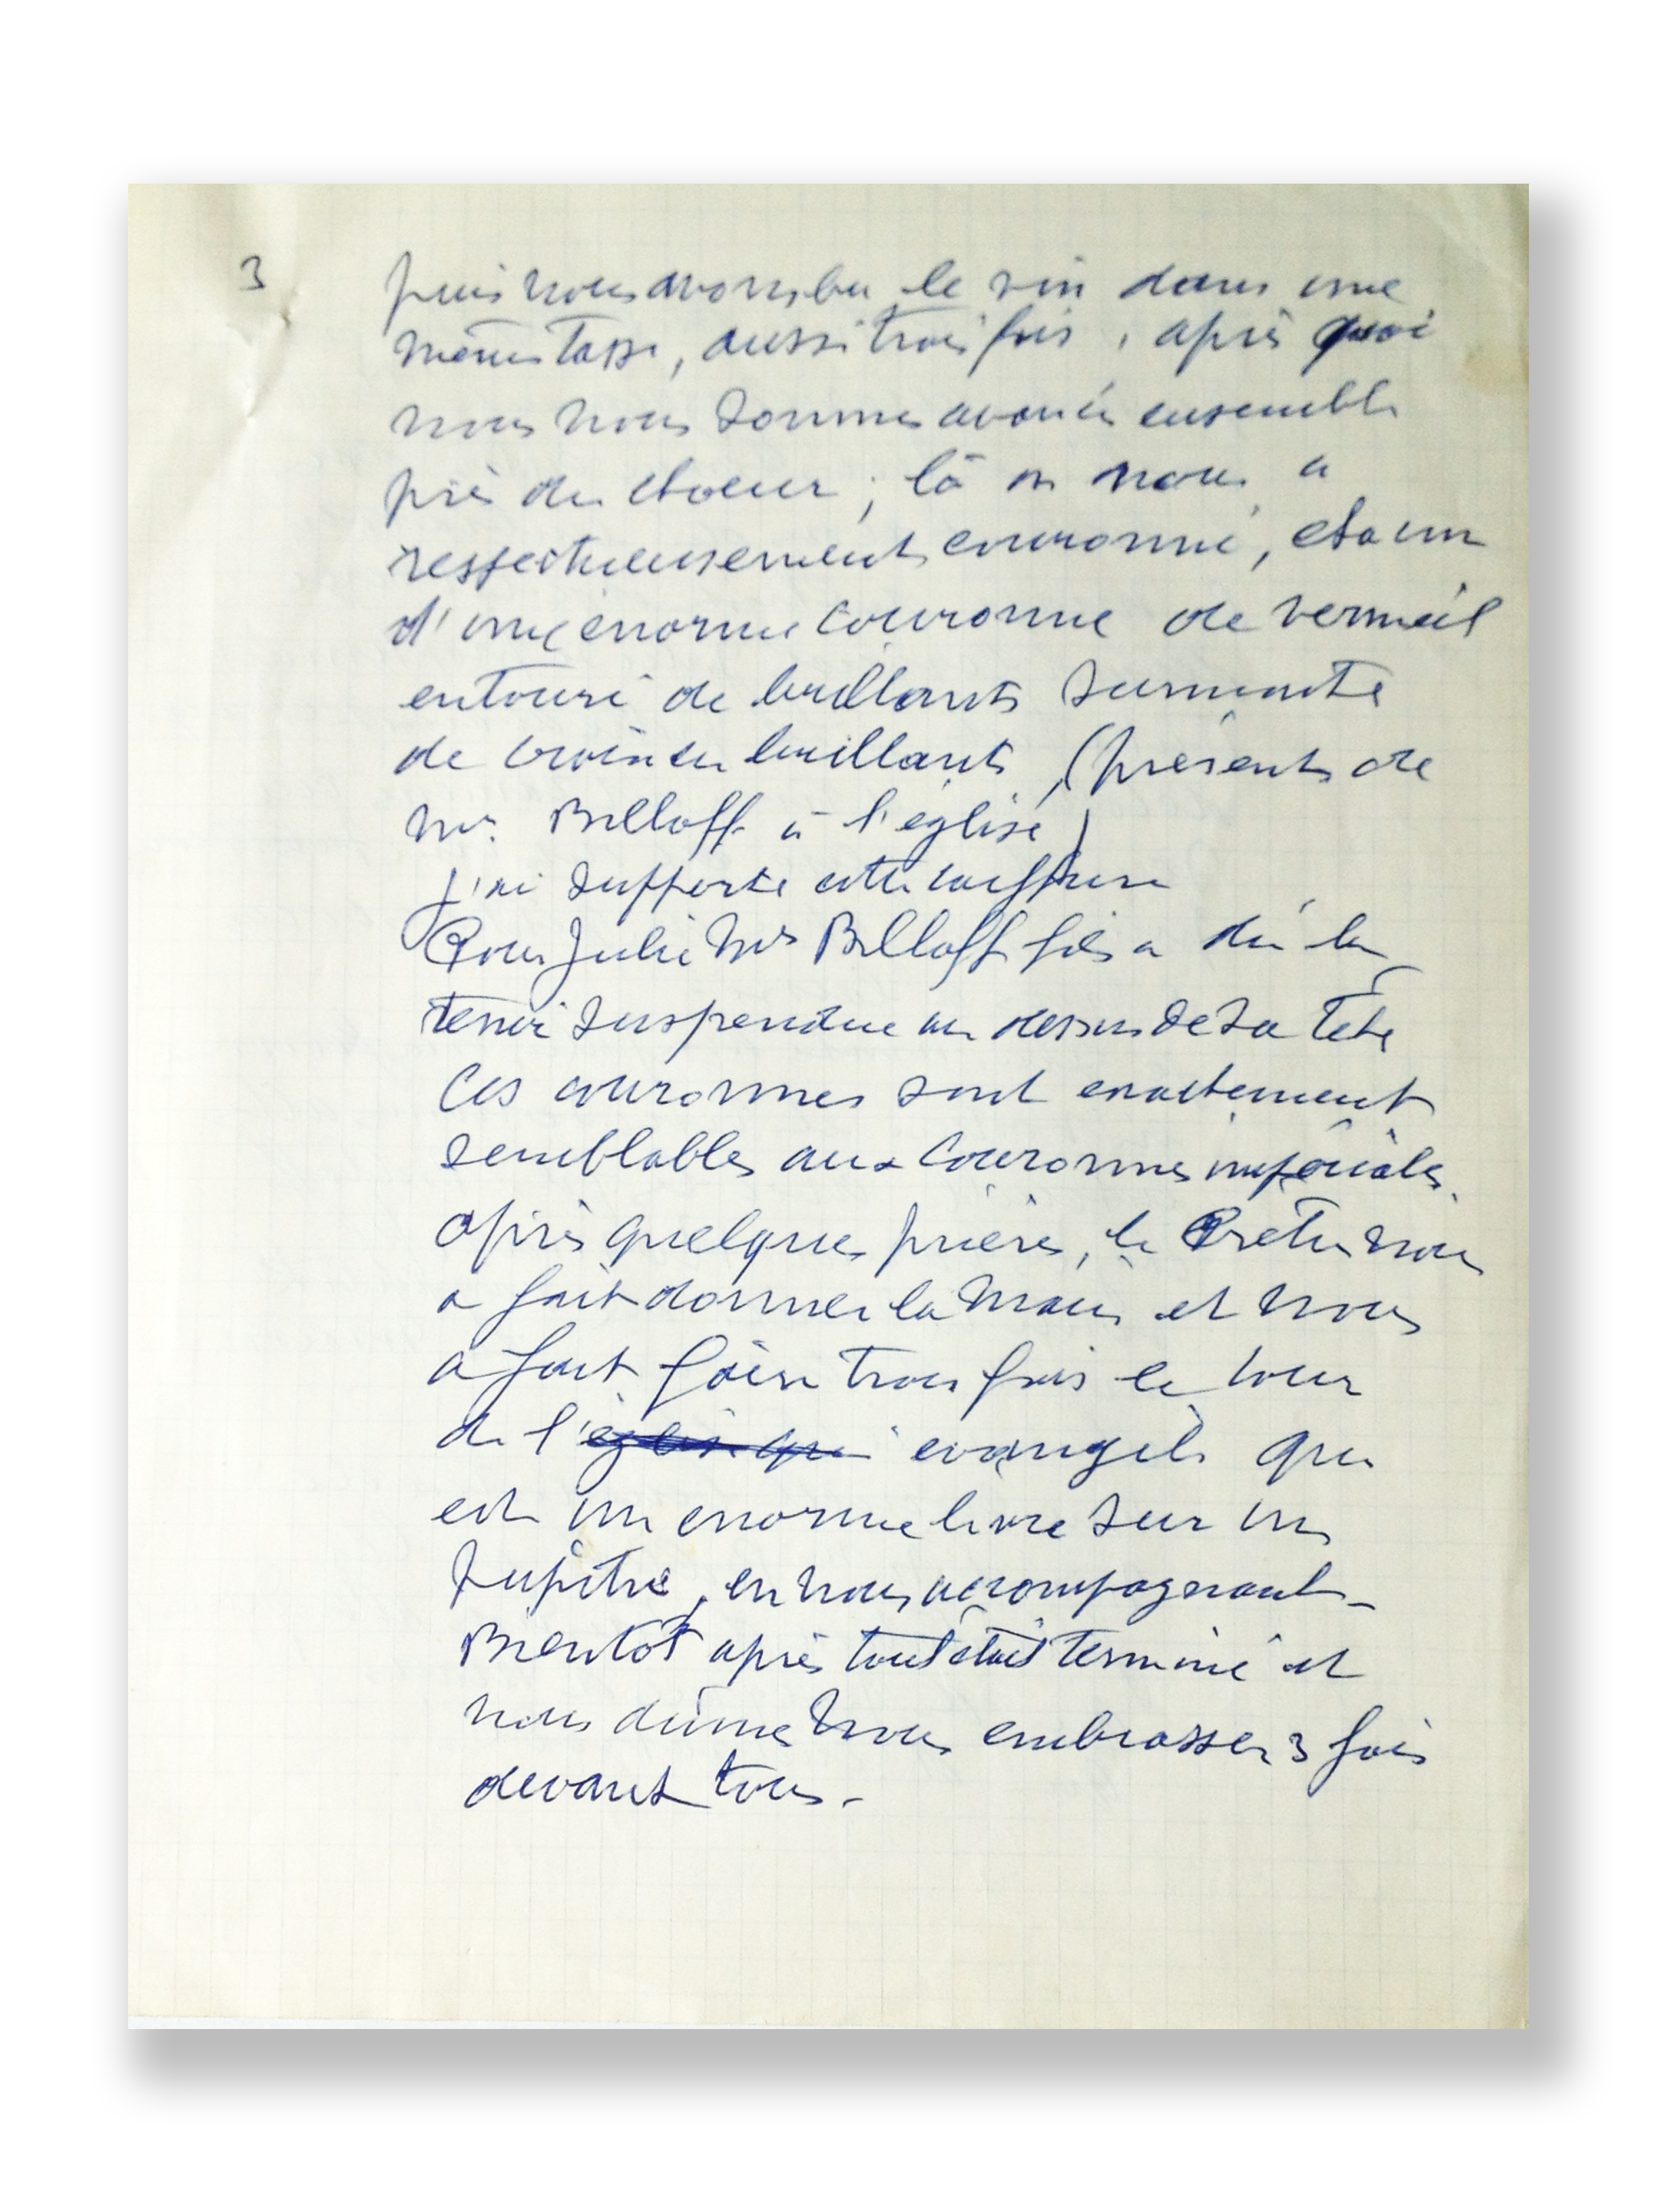 3
puis nous avons bu le vin dans une
même tasse, aussi trois fois, après quoi
nous nous sommes avancés ensemble
près du choeur ; là on nous a
respectueusement couronné, chacun
d'une énorme couronne de vermeil
entouré de brillants surmonté
de croix en brillants (présents de
Mr. Billoff à l'église)
j'ai supporté cette coiffure
Pour Julie Mr Billoff fils a dû la
tenir suspendue au dessus de sa tête
Ces couronnes sont exactement
semblables aux couronnes impériales.
après quelques prières, le Prêtre nous
a fait donner la main et nous
a fait faire trois fois le tour
de l'église qui evangile qui
est un enorme livre sur un
pupitre, en nous accompagnant -
Bientôt après tout était terminé et
nous dûmes nous embrasser 3 fois
devant tous -